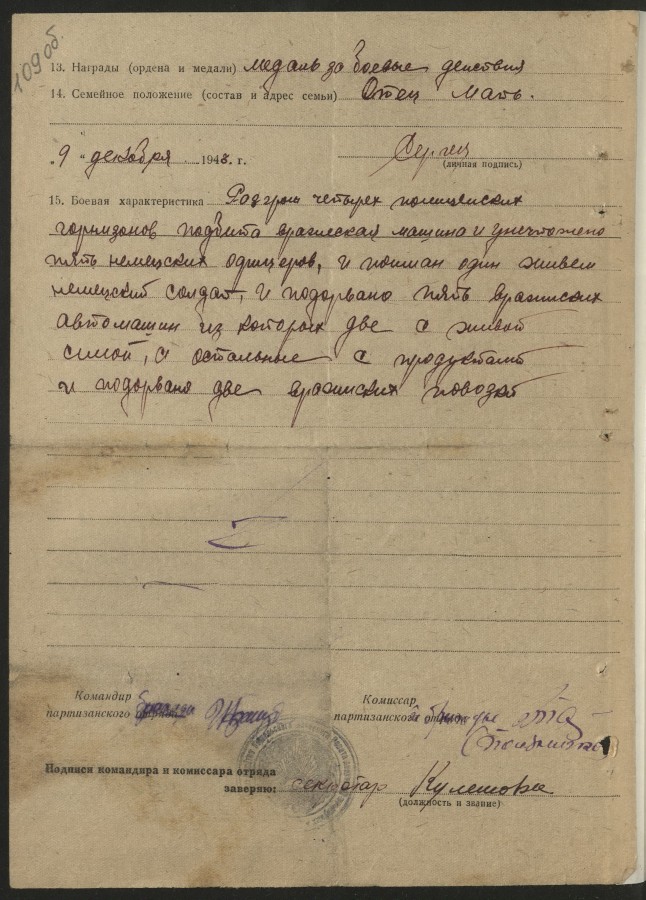 109 об.
13. Награды (ордена и медали) медаль за боевые действия
14. Семейное положение (состав и адрес семьи) Отец Мать.
„9“ декабря 1943. г.
(личная подпись)
15. Боевая характеристика Разгром четырех полицейских
горнизонов подбита вражеская машина и уничтожено
пять немецких офицеров, и пойман один живьем
немецкий солдат, и подорвано пять вражиских
автомашин из которых две с живой
силой, а остальные с продуктами
и подорвано две вражиских повозки
Командир
партизанского отряда бригады
Комиссар
партизанского отряда бригады
Надписи командира и комиссара отряда
заверяю: секретарь Кулешова
(должность и звание)